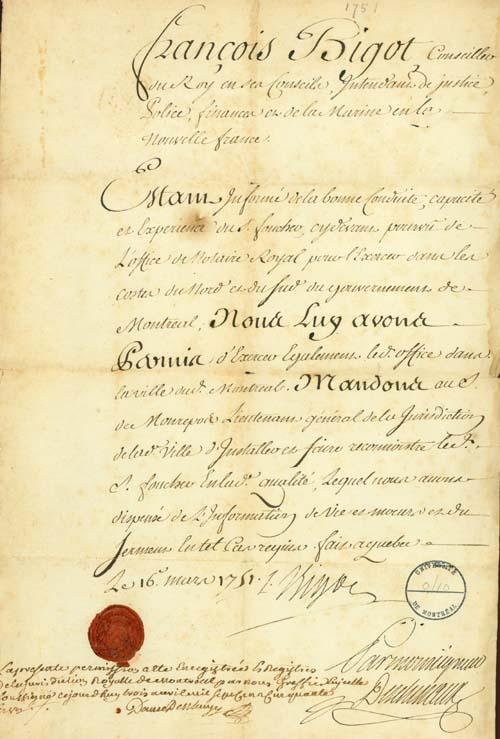 1751
François Bigot, Conseiller
du Roy en ses Conseils, Intendant de justice,
Police, finances et de la Marine en la
Nouvelle france.
Etant Informé de la bonne Conduite, capacité
et Experience du S. foucher, cydevant pourvû de
L'office de Notaire Royal pour l'Exercer dans les
costes du Nord et du Sud du gouvernement de
Montreal, Nous Luy avons
Permis d'Exercer Egalement led. office dans
la ville dud. Montreal. Mandons au S.
de Monrepos Lieutenant général de la Jurisdiction
de lad. Ville d'Installer et faire reconnoistre led.
S. foucher En lad. qualité, Lequel nous avons
dispensé de L'Information de vie et moeurs et du
Serment En tel Cas requis fait a quebec
Le 16. mars 1751. Bigot
UNIVERSITÉ
DE MONTRÉAL
Par Monseigneur
La presente permission a été Enregistrée Es Registres
de la Jurisdiction Royalle de Montreal par nous Greffier d'Icelle
Soussigné cejourd'huy trois avril mil Sept Cent Cinquante
Danré Deblanzy